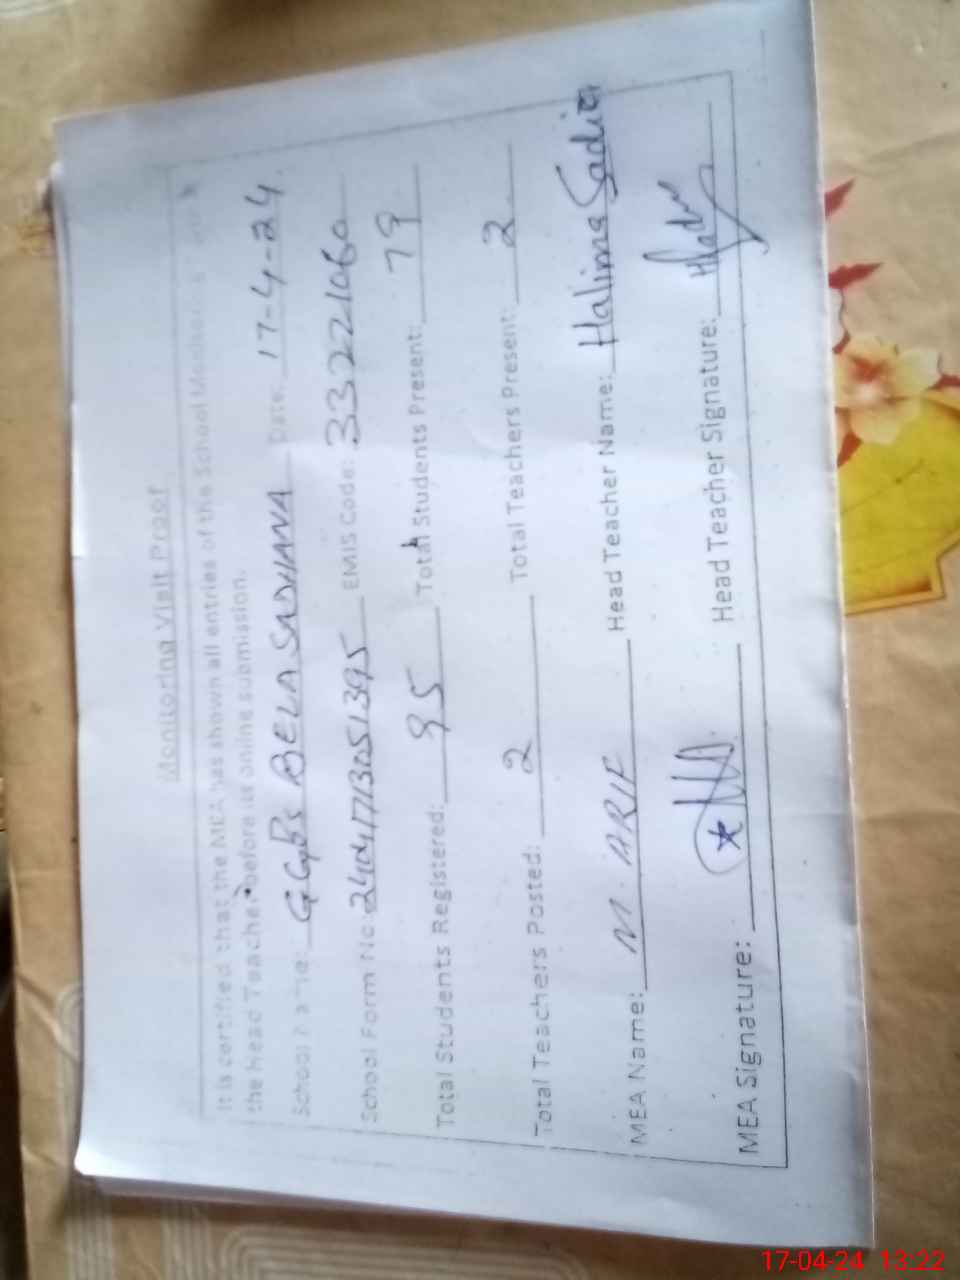 Monitoring Visit Proof
It is certified that the MEA has shown all entries of the School
the Head Teacher before its online submission.
School Name: GGPS BELA SADHANA Date: 17-4-24
School Form No: 24041713051395 EMIS Code: 33221060
Total Students Registered: 95 Total Students Present: 79
Total Teachers Posted: 2 Total Teachers Present: 2
MEA Name: M. ARIF Head Teacher Name: Halima Sadia
MEA Signature: Head Teacher Signature:
17-04-24 13:22